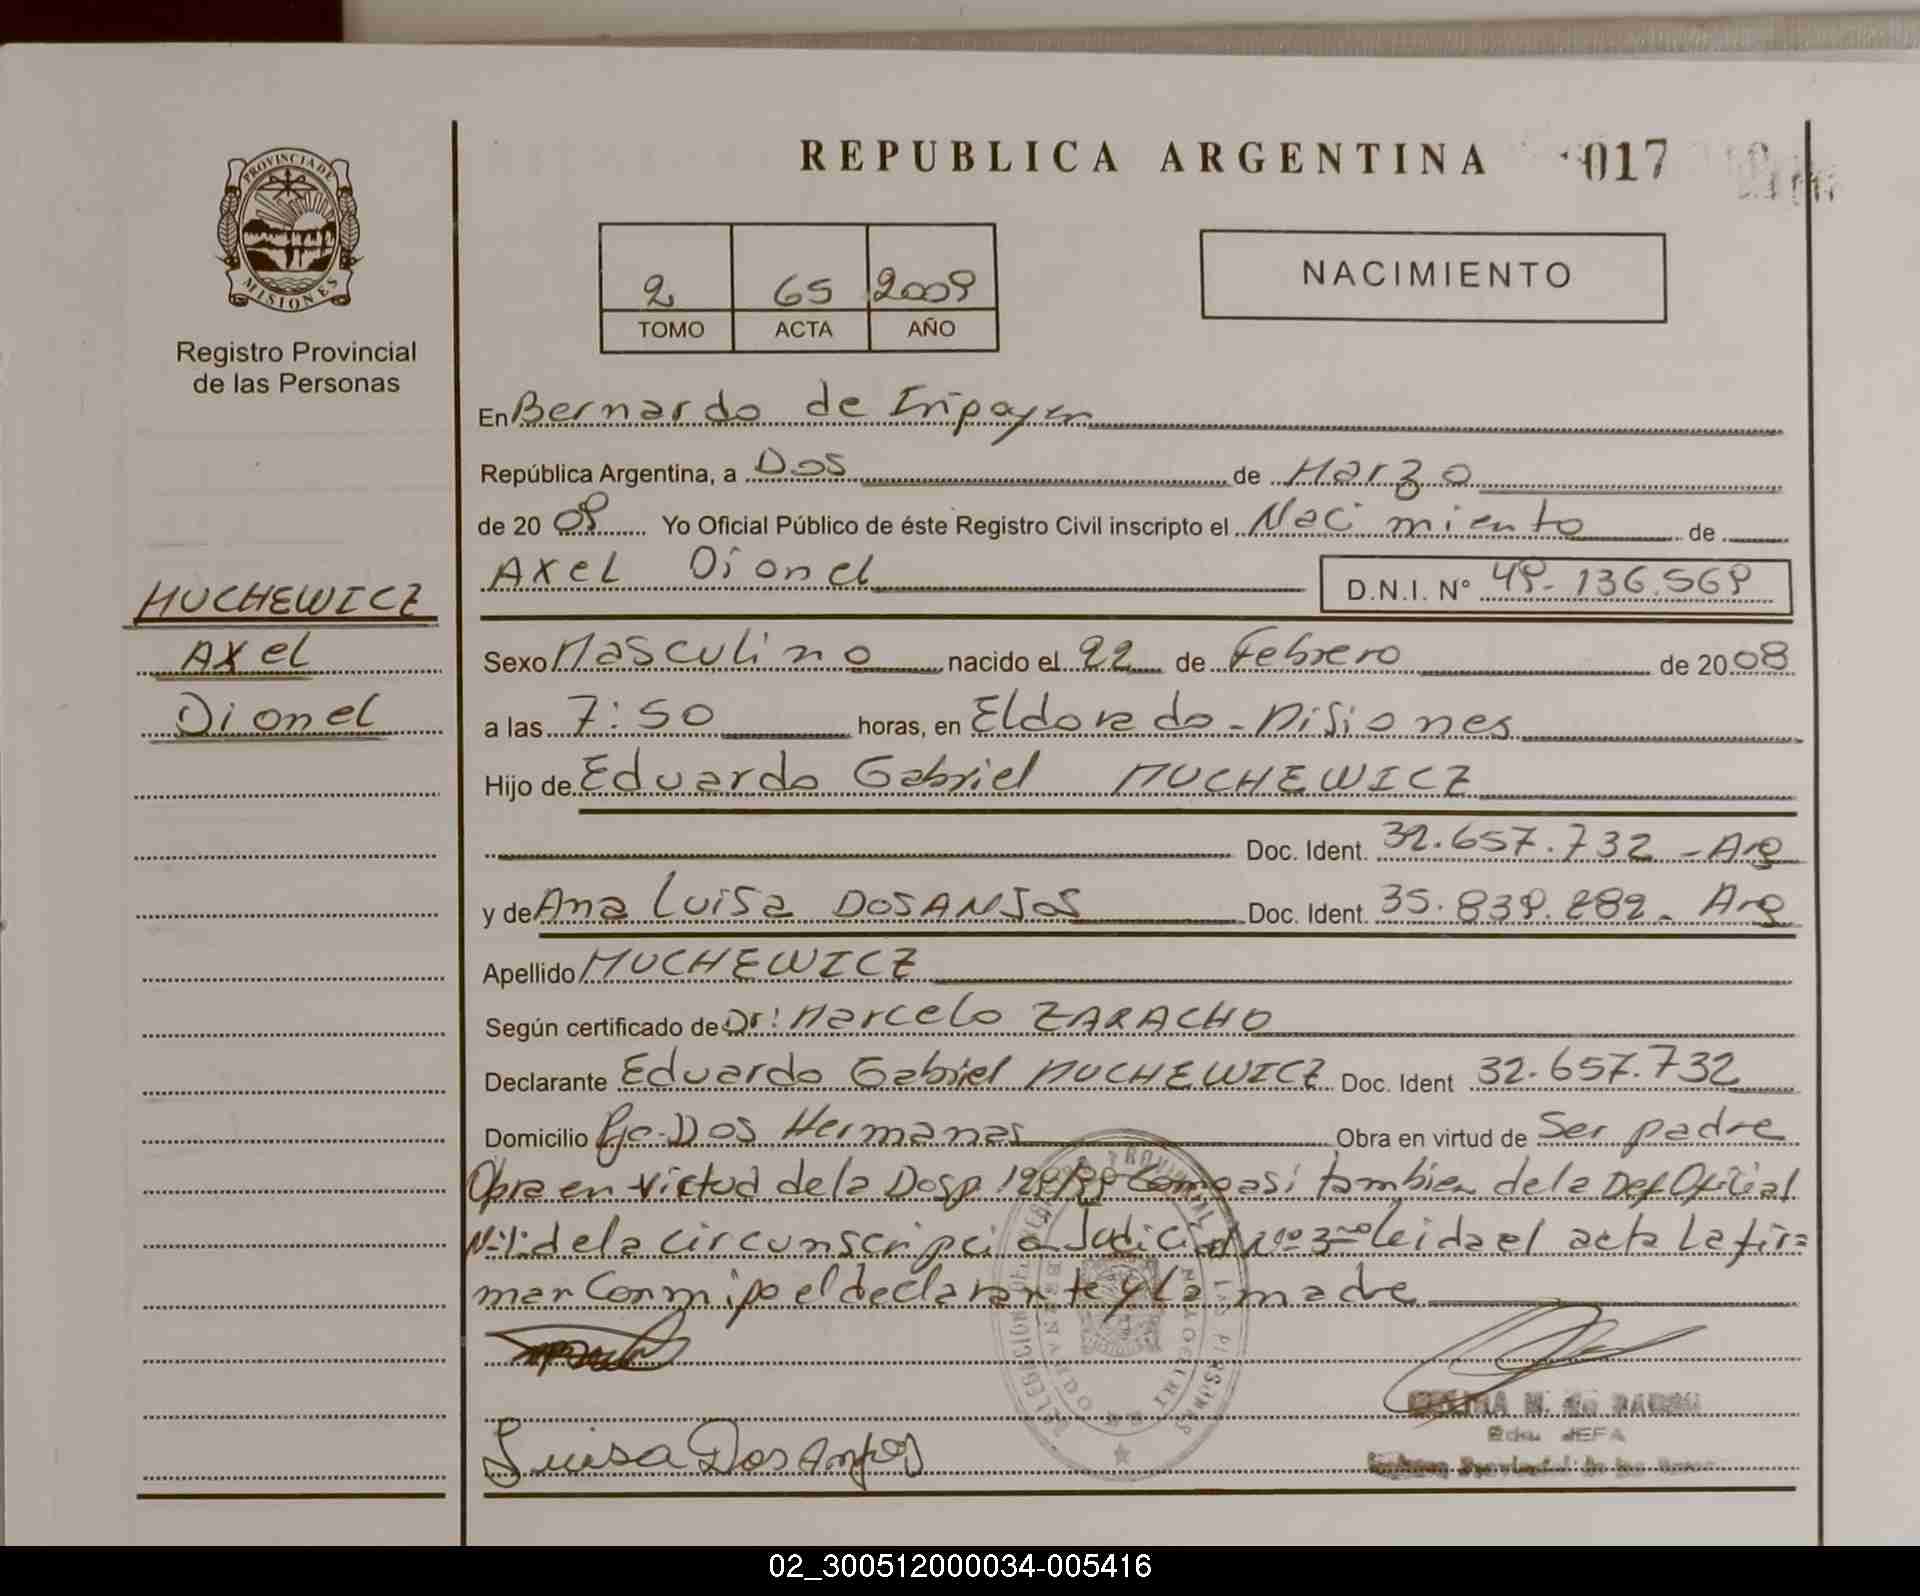 REPUBLICA ARGENTINA 017
PROVINCIA DE
MISIONES
Registro Provincial
de las Personas
2 65 2009
TOMO ACTA AÑO
NACIMIENTO
En Bernardo de Iripoyen
República Argentina, a Dos de Marzo
de 20 09 Yo Oficial Público de éste Registro Civil inscripto el Nacimiento de
Axel Dionel D.N.I. N° 49-136.569
MUCHEWICZ
Axel
Dionel
Sexo Masculino nacido el 22 de Febrero de 2008
a las 7:50 horas, en Eldorado - Misiones
Hijo de Eduardo Gabriel MUCHEWICZ
Doc. Ident. 32.657.732 - Arg
y de Ana Luisa DOSANJOS Doc. Ident. 35.839.282 - Arg
Apellido MUCHEWICZ
Según certificado de Dr: Marcelo ZARACHO
Declarante Eduardo Gabriel MUCHEWICZ Doc. Ident 32.657.732
Domicilio Pje. Dos Hermanas Obra en virtud de Ser padre
Obra en virtud de la Dosp. Como asi tambien de la Def Oficial
N:1: de la circunscripcio Judicial Nº 3 leida el acta La fir=
man Conmipo el declarante y La madre
Luisa Dos Anjos
JEFA
02_300512000034-005416